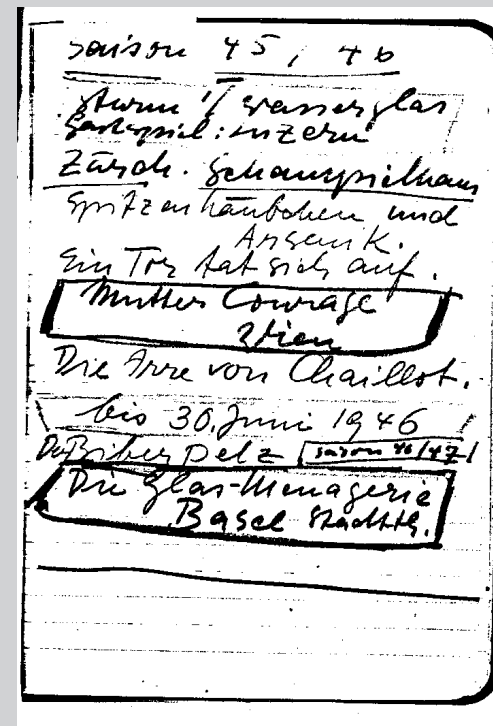 Saison 45, 46
Sturm i/ Wasserglas
Gastspiel: Luzern
Zürch. Schauspielhaus
Spitzenhäubchen und
Arsenik.
Ein Tor tat sich auf.
Mutter Courage
Wien
Die Irre von Chaillot.
bis 30. Juni 1946
Der Biber Pelz Saison 46/47
Die Glas-Menagerie
Basel Stadtth.